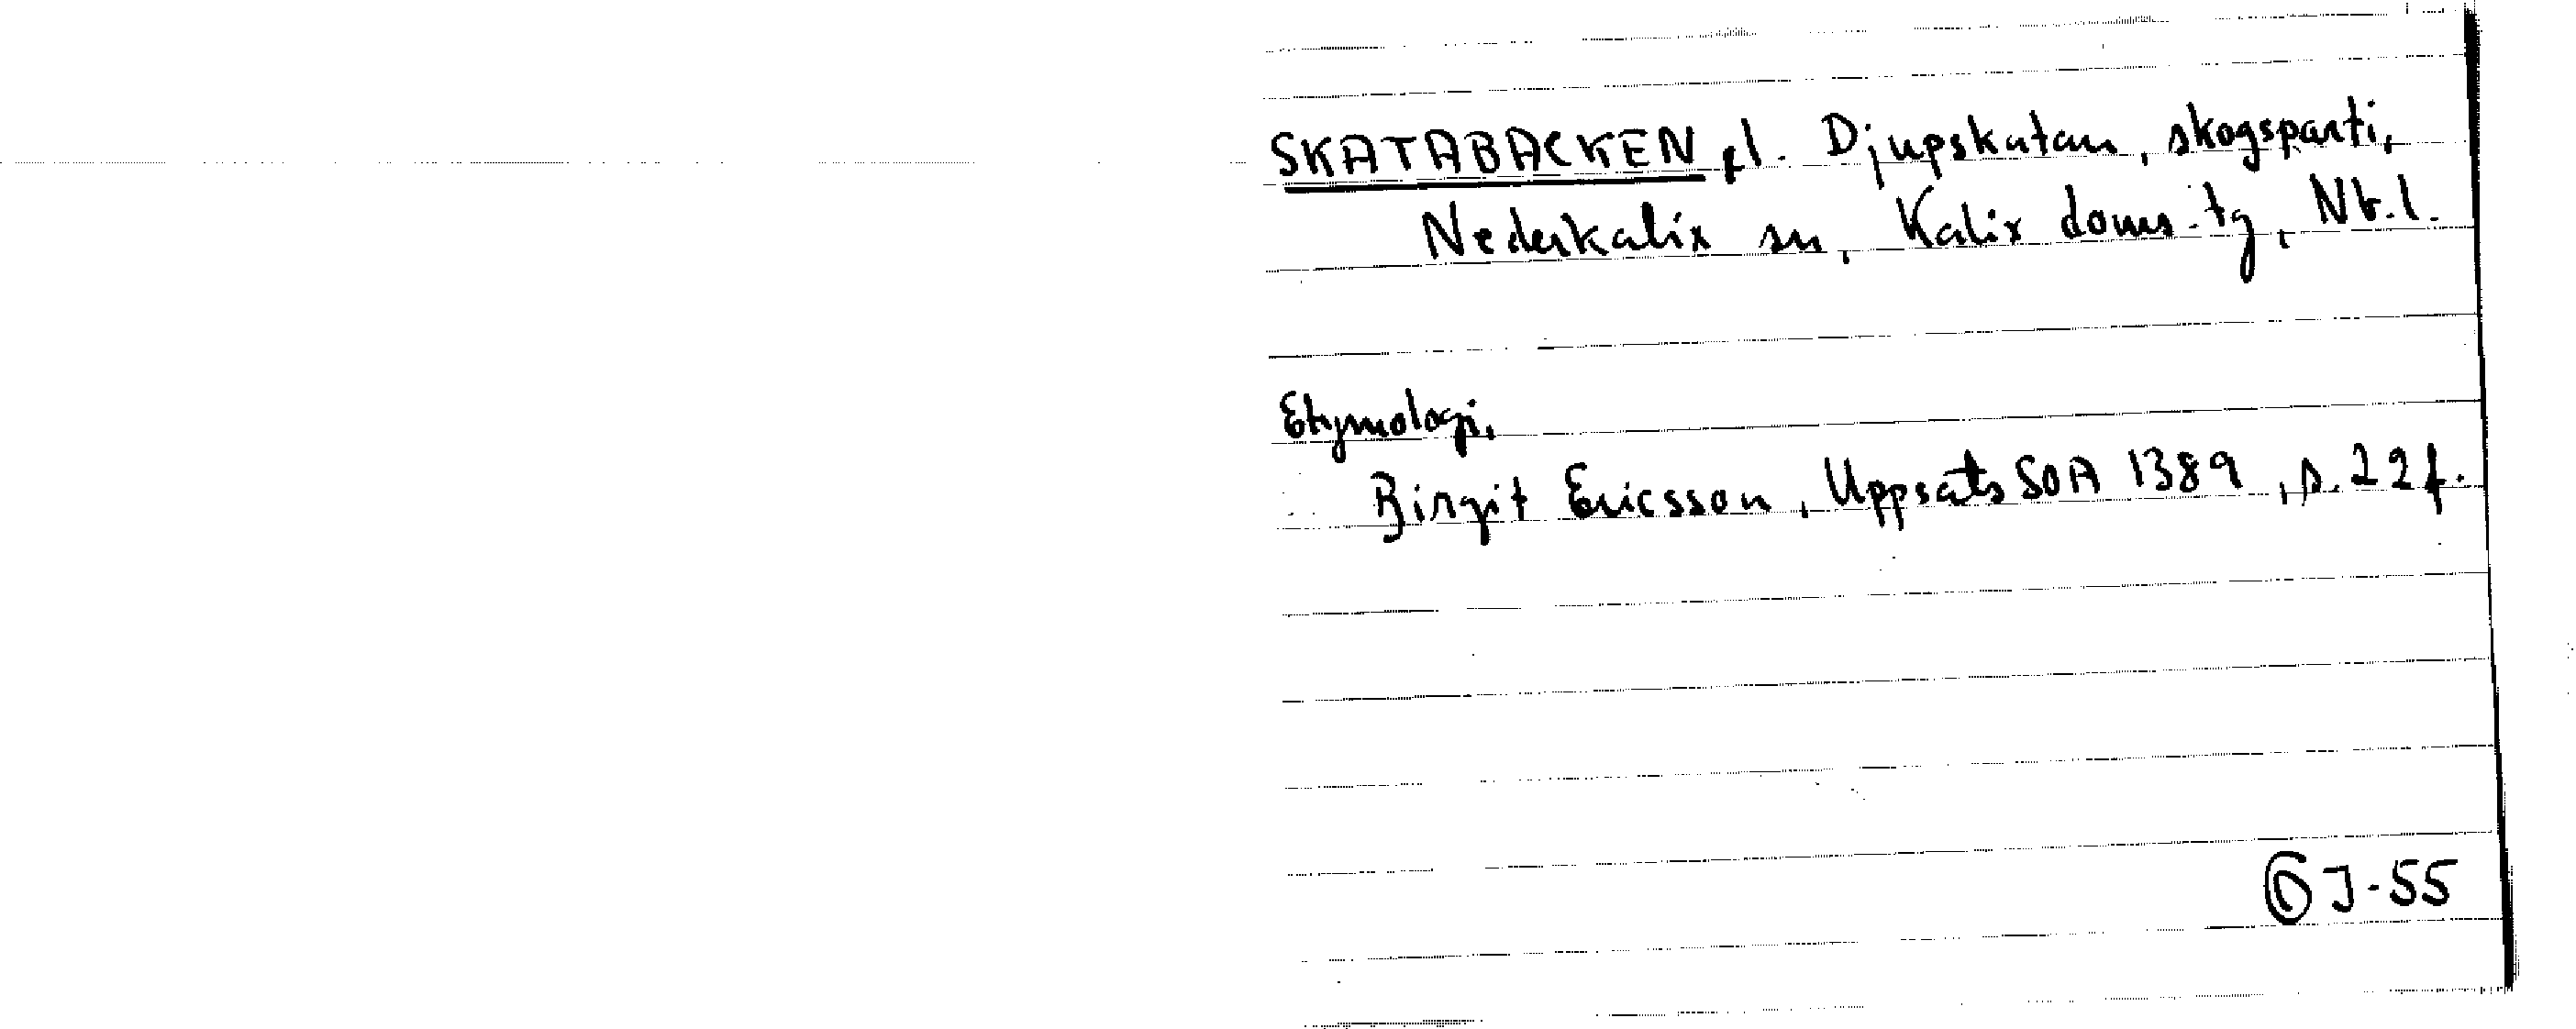 SKATABACKEN el. Djupskatan, skogsparti,
Nederkalix sn, Kalix doms.tg, Nb.l.
Etymologi,
Birgit Ericsson, Uppsats SOA 1389, s. 22 f.
ÖJ-55